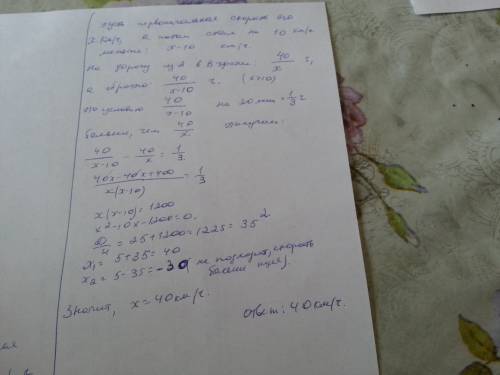 пусть первоначальная скорость его
x км/ч, а потом стал на 10 км/ч
меньше: x-10 км/ч.
На дорогу из А в В время: 40/x ч,
а обратно: 40/(x-10) ч. (x>10)
По условию 40/(x-10) на 20 мин = 1/3 ч
больше, чем 40/x получаем:
40/(x-10) - 40/x = 1/3
(40x-40x+400)/(x(x-10)) = 1/3
x(x-10)=1200
x²-10x-1200=0.
D/4 = 25+1200=1225=35²
x₁= 5+35=40
x₂= 5-35=-30 (не подходит, скорость
больше нуля).
Значит, x=40км/ч.
ответ: 40км/ч.
ая